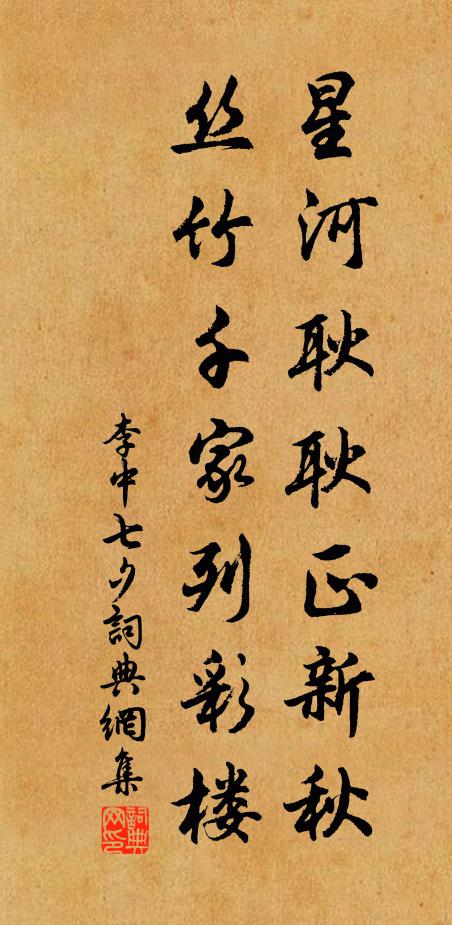 星河耿耿正新秋
丝竹千家列彩楼
李中七夕詞典網集
詞典网印